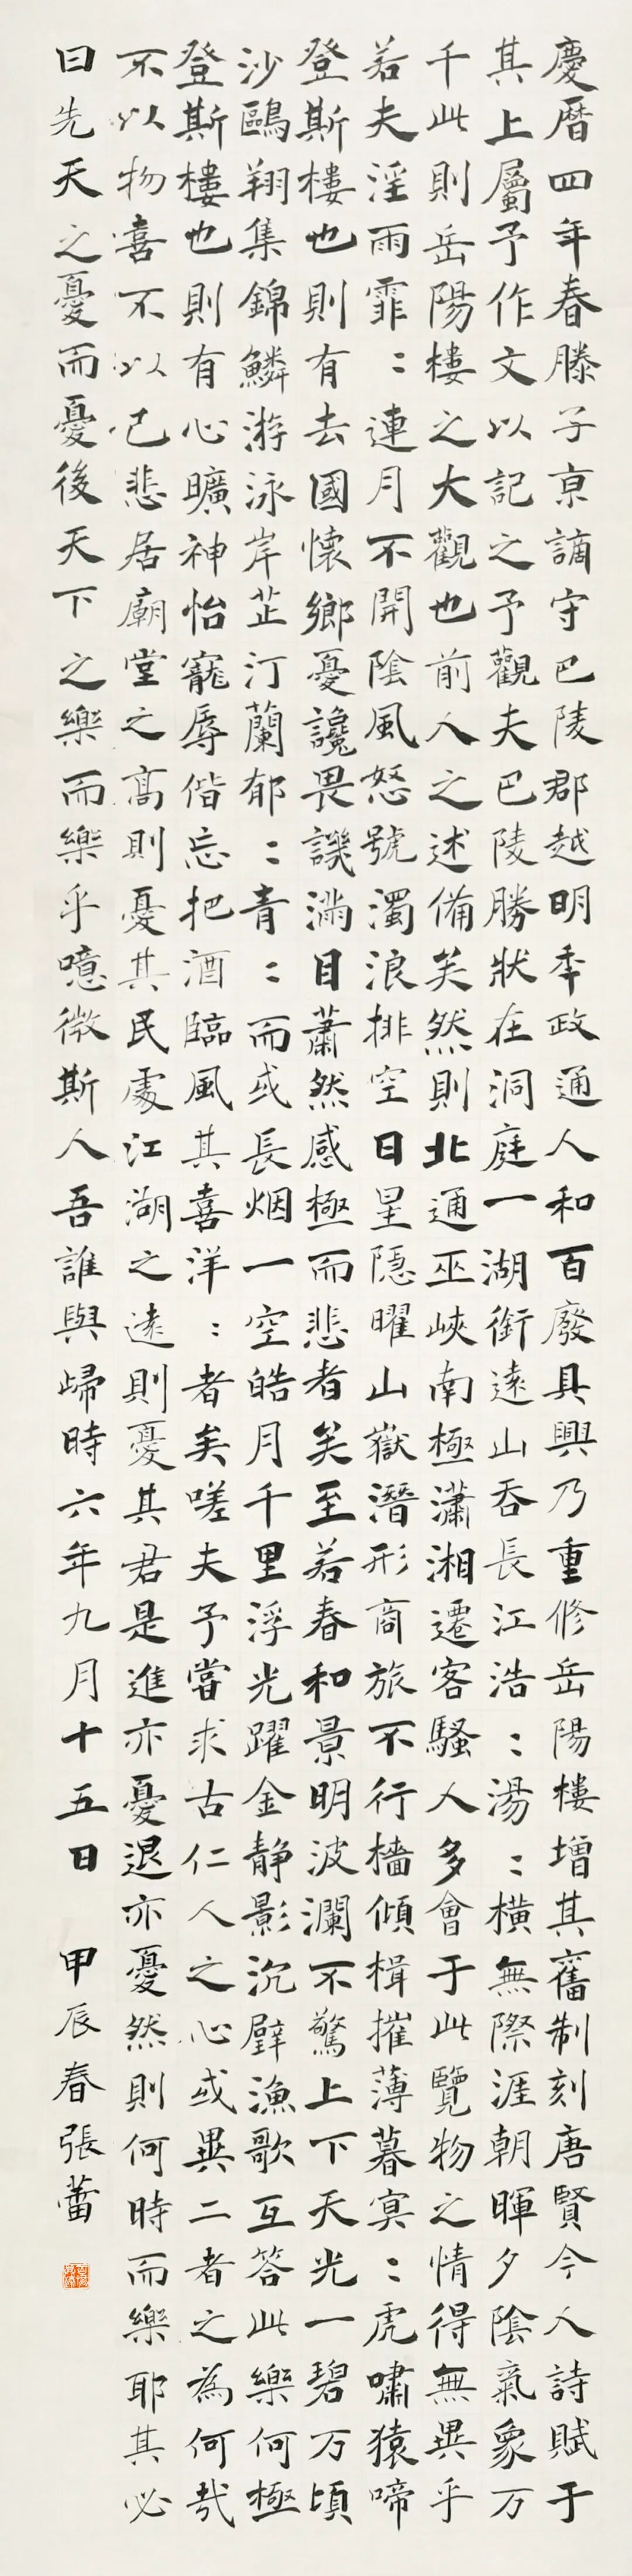 慶曆四年春滕子京謫守巴陵郡越明年政通人和百廢具興乃重修岳陽樓增其舊制刻唐賢今人詩賦于
其上屬予作文以記之予觀夫巴陵勝狀在洞庭一湖銜遠山吞長江浩：湯：橫無際涯朝暉夕陰氣象万
千此則岳陽樓之大觀也前人之述備矣然則北通巫峽南極瀟湘遷客騷人多會于此覽物之情得無異乎
若夫淫雨霏：連月不開陰風怒號濁浪排空日星隱曜山嶽潛形商旅不行檣傾楫摧薄暮冥：虎嘯猿啼
登斯樓也則有去國懷鄉憂讒畏譏滿目蕭然感極而悲者矣至若春和景明波瀾不驚上下天光一碧万頃
沙鷗翔集錦鱗游泳岸芷汀蘭郁：青：而或長烟一空皓月千里浮光躍金靜影沉璧漁歌互答此樂何極
登斯樓也則有心曠神怡寵辱偕忘把酒臨風其喜洋：者矣嗟夫予嘗求古仁人之心或異二者之為何哉
不以物喜不以己悲居廟堂之高則憂其民處江湖之遠則憂其君是進亦憂退亦憂然則何時而樂耶其必
曰先天之憂而憂後天下之樂而樂乎噫微斯人吾誰與歸時六年九月十五日 甲辰春張蕾